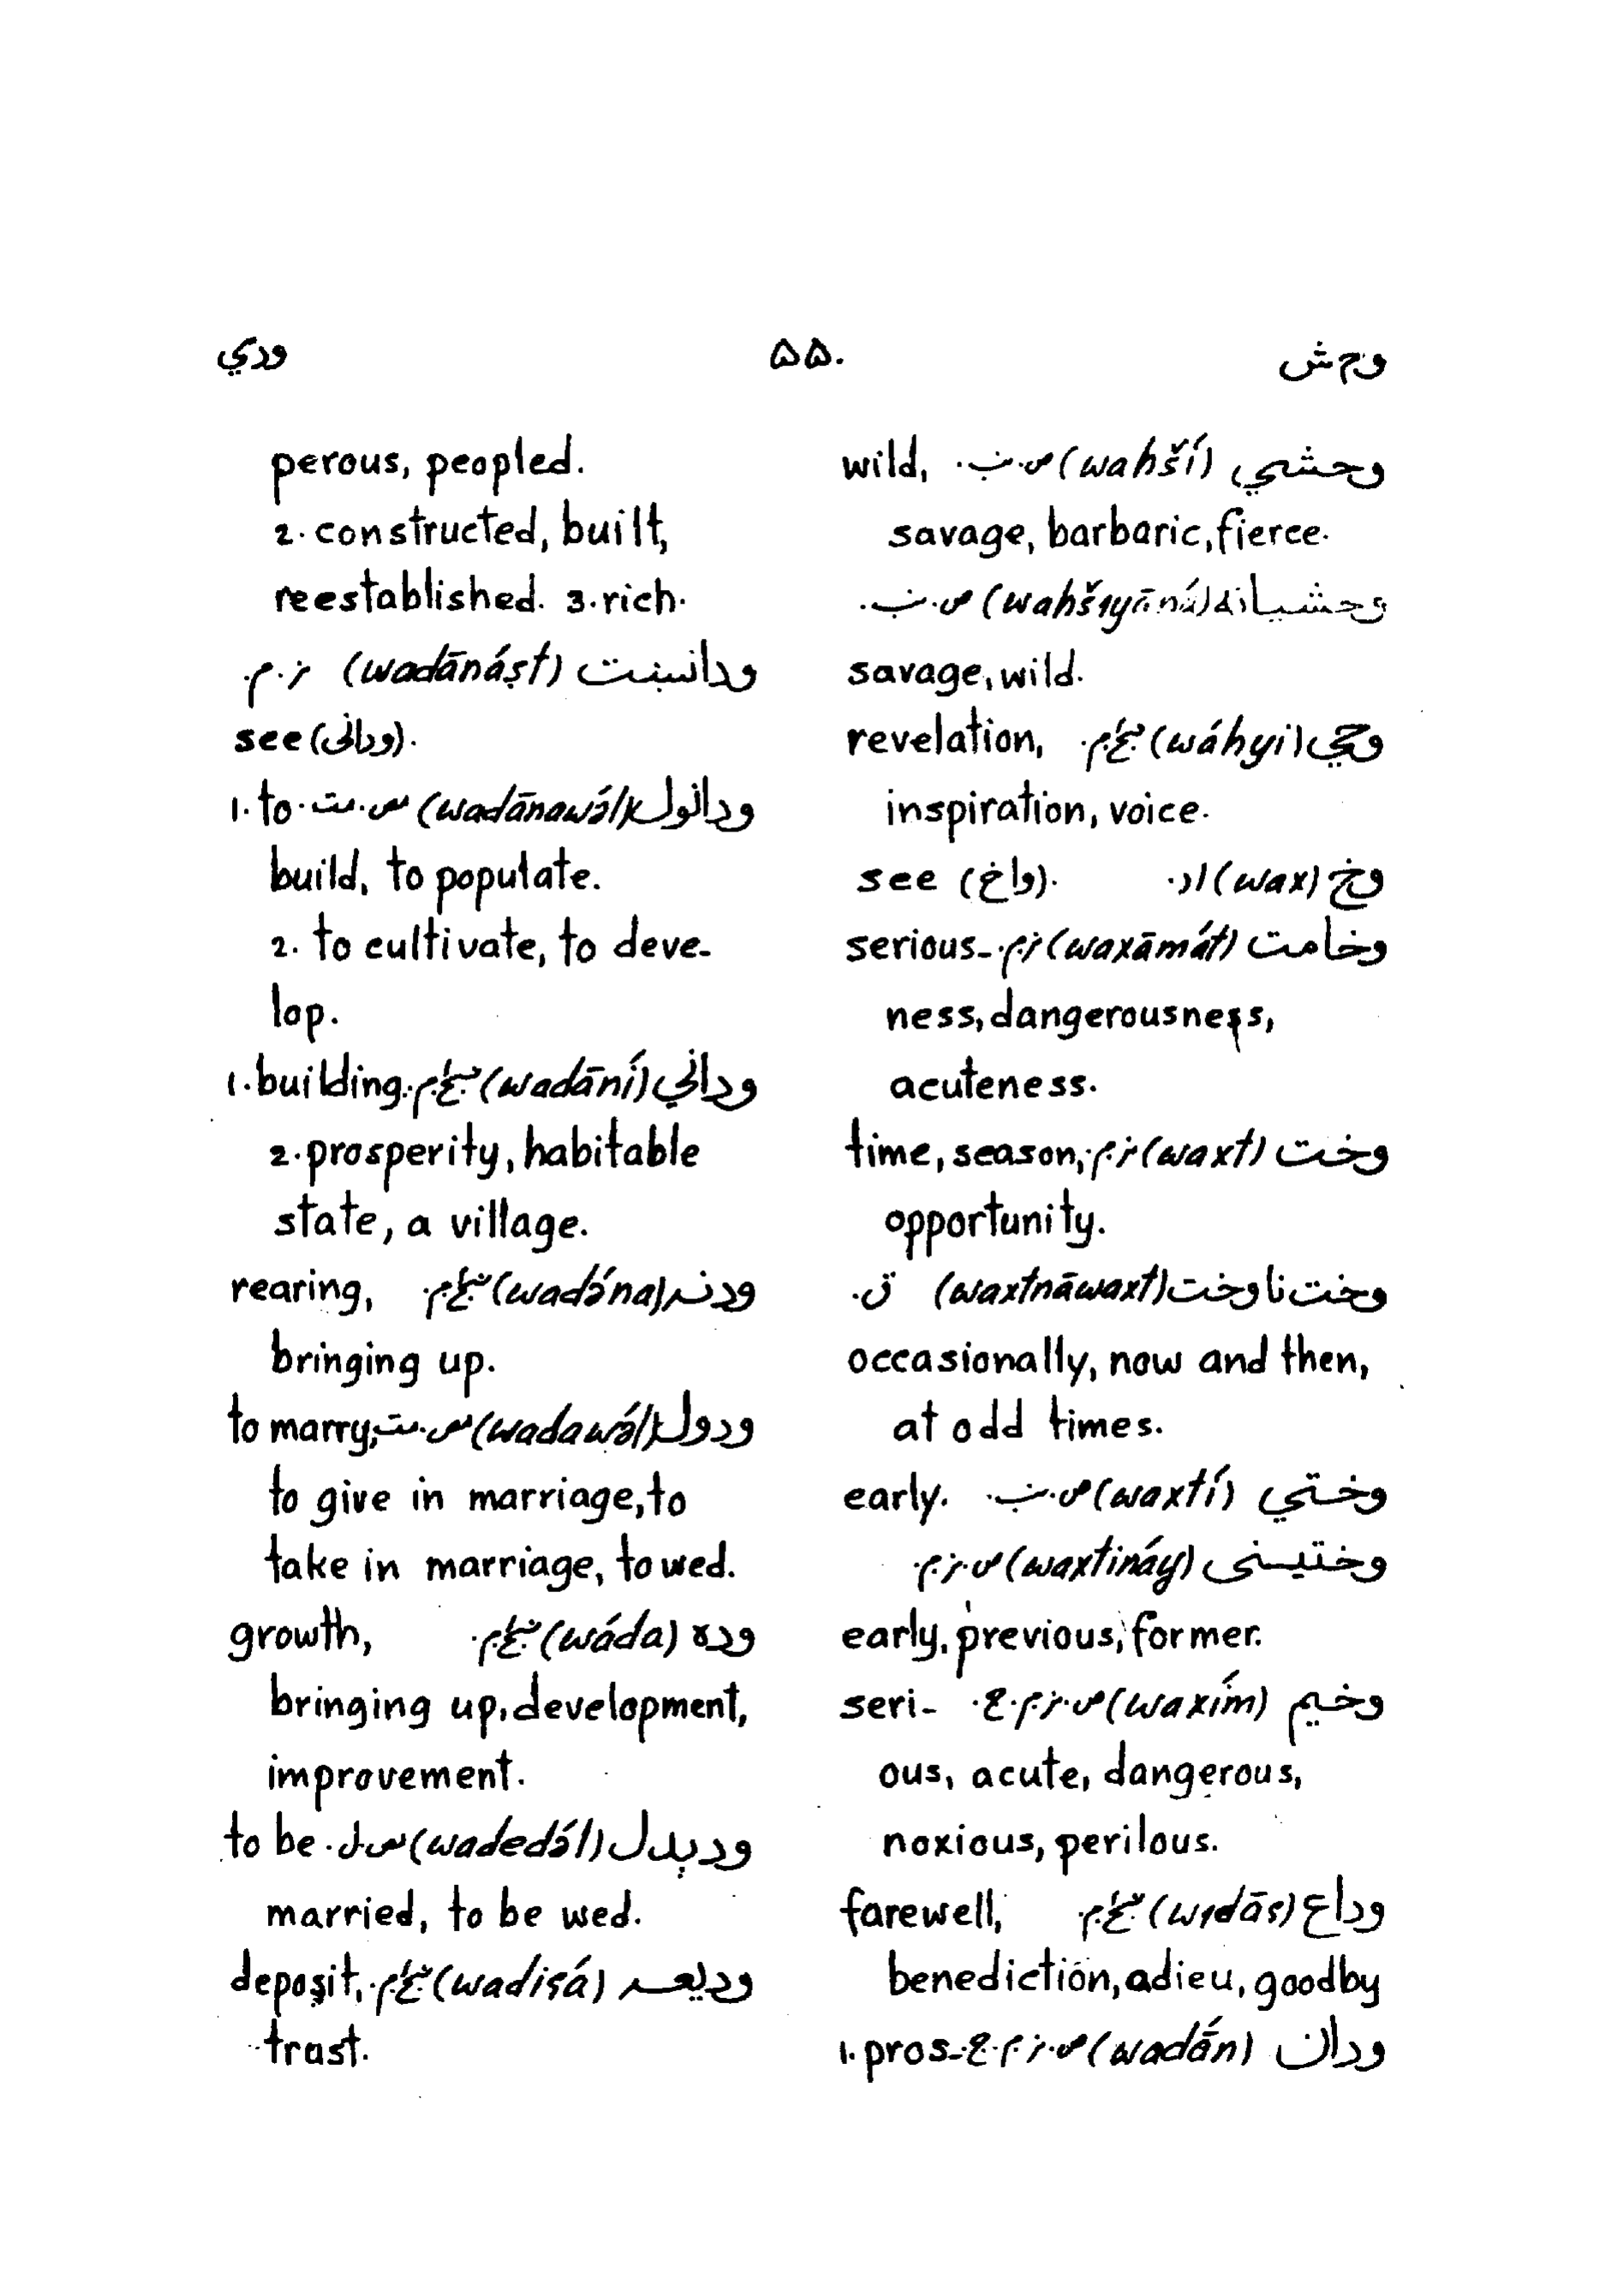 وح ش ۵۵۰ ودي
وحشي (wahší) ص.ن. wild,
savage, barbaric, fierce.
وحشيانه (wahšiyāná) ص.ن.
savage, wild.
وحي (wáhyi) ن.م. revelation,
inspiration, voice.
وخ (wax) اد. see (واخ).
وخامت (waxāmát) ن.م. serious-
ness, dangerousness,
acuteness.
وخت (waxt) ن.م. time, season,
opportunity.
وخت ناوخت (waxtnāwaxt) ق.
occasionally, now and then,
at odd times.
وختي (waxtí) ص.ن. early.
وختينی (waxtináy) ص.ن.م
early, previous, former.
وخيم (waxím) seri-
ous, acute, dangerous,
noxious, perilous.
وداع (widāʕ) farewell,
benediction, adieu, goodby
ودان (wadā́n) 1. pros-
perous, peopled.
2. constructed, built,
reestablished. 3. rich.
ودانښت (wadānáṣt) ن.م.
see (ودانی).
ودانول (wadānawә́l) 1. to
build, to populate.
2. to cultivate, to deve-
lop.
وداني (wadāní) 1. building.
2. prosperity, habitable
state, a village.
ودنه (wadә́na) rearing,
bringing up.
ودول (wadawә́l) to marry,
to give in marriage, to
take in marriage, to wed.
وده (wáda) growth,
bringing up, development,
improvement.
ودېدل (wadedә́l) to be
married, to be wed.
وديعه (wadiʕá) deposit,
trust.